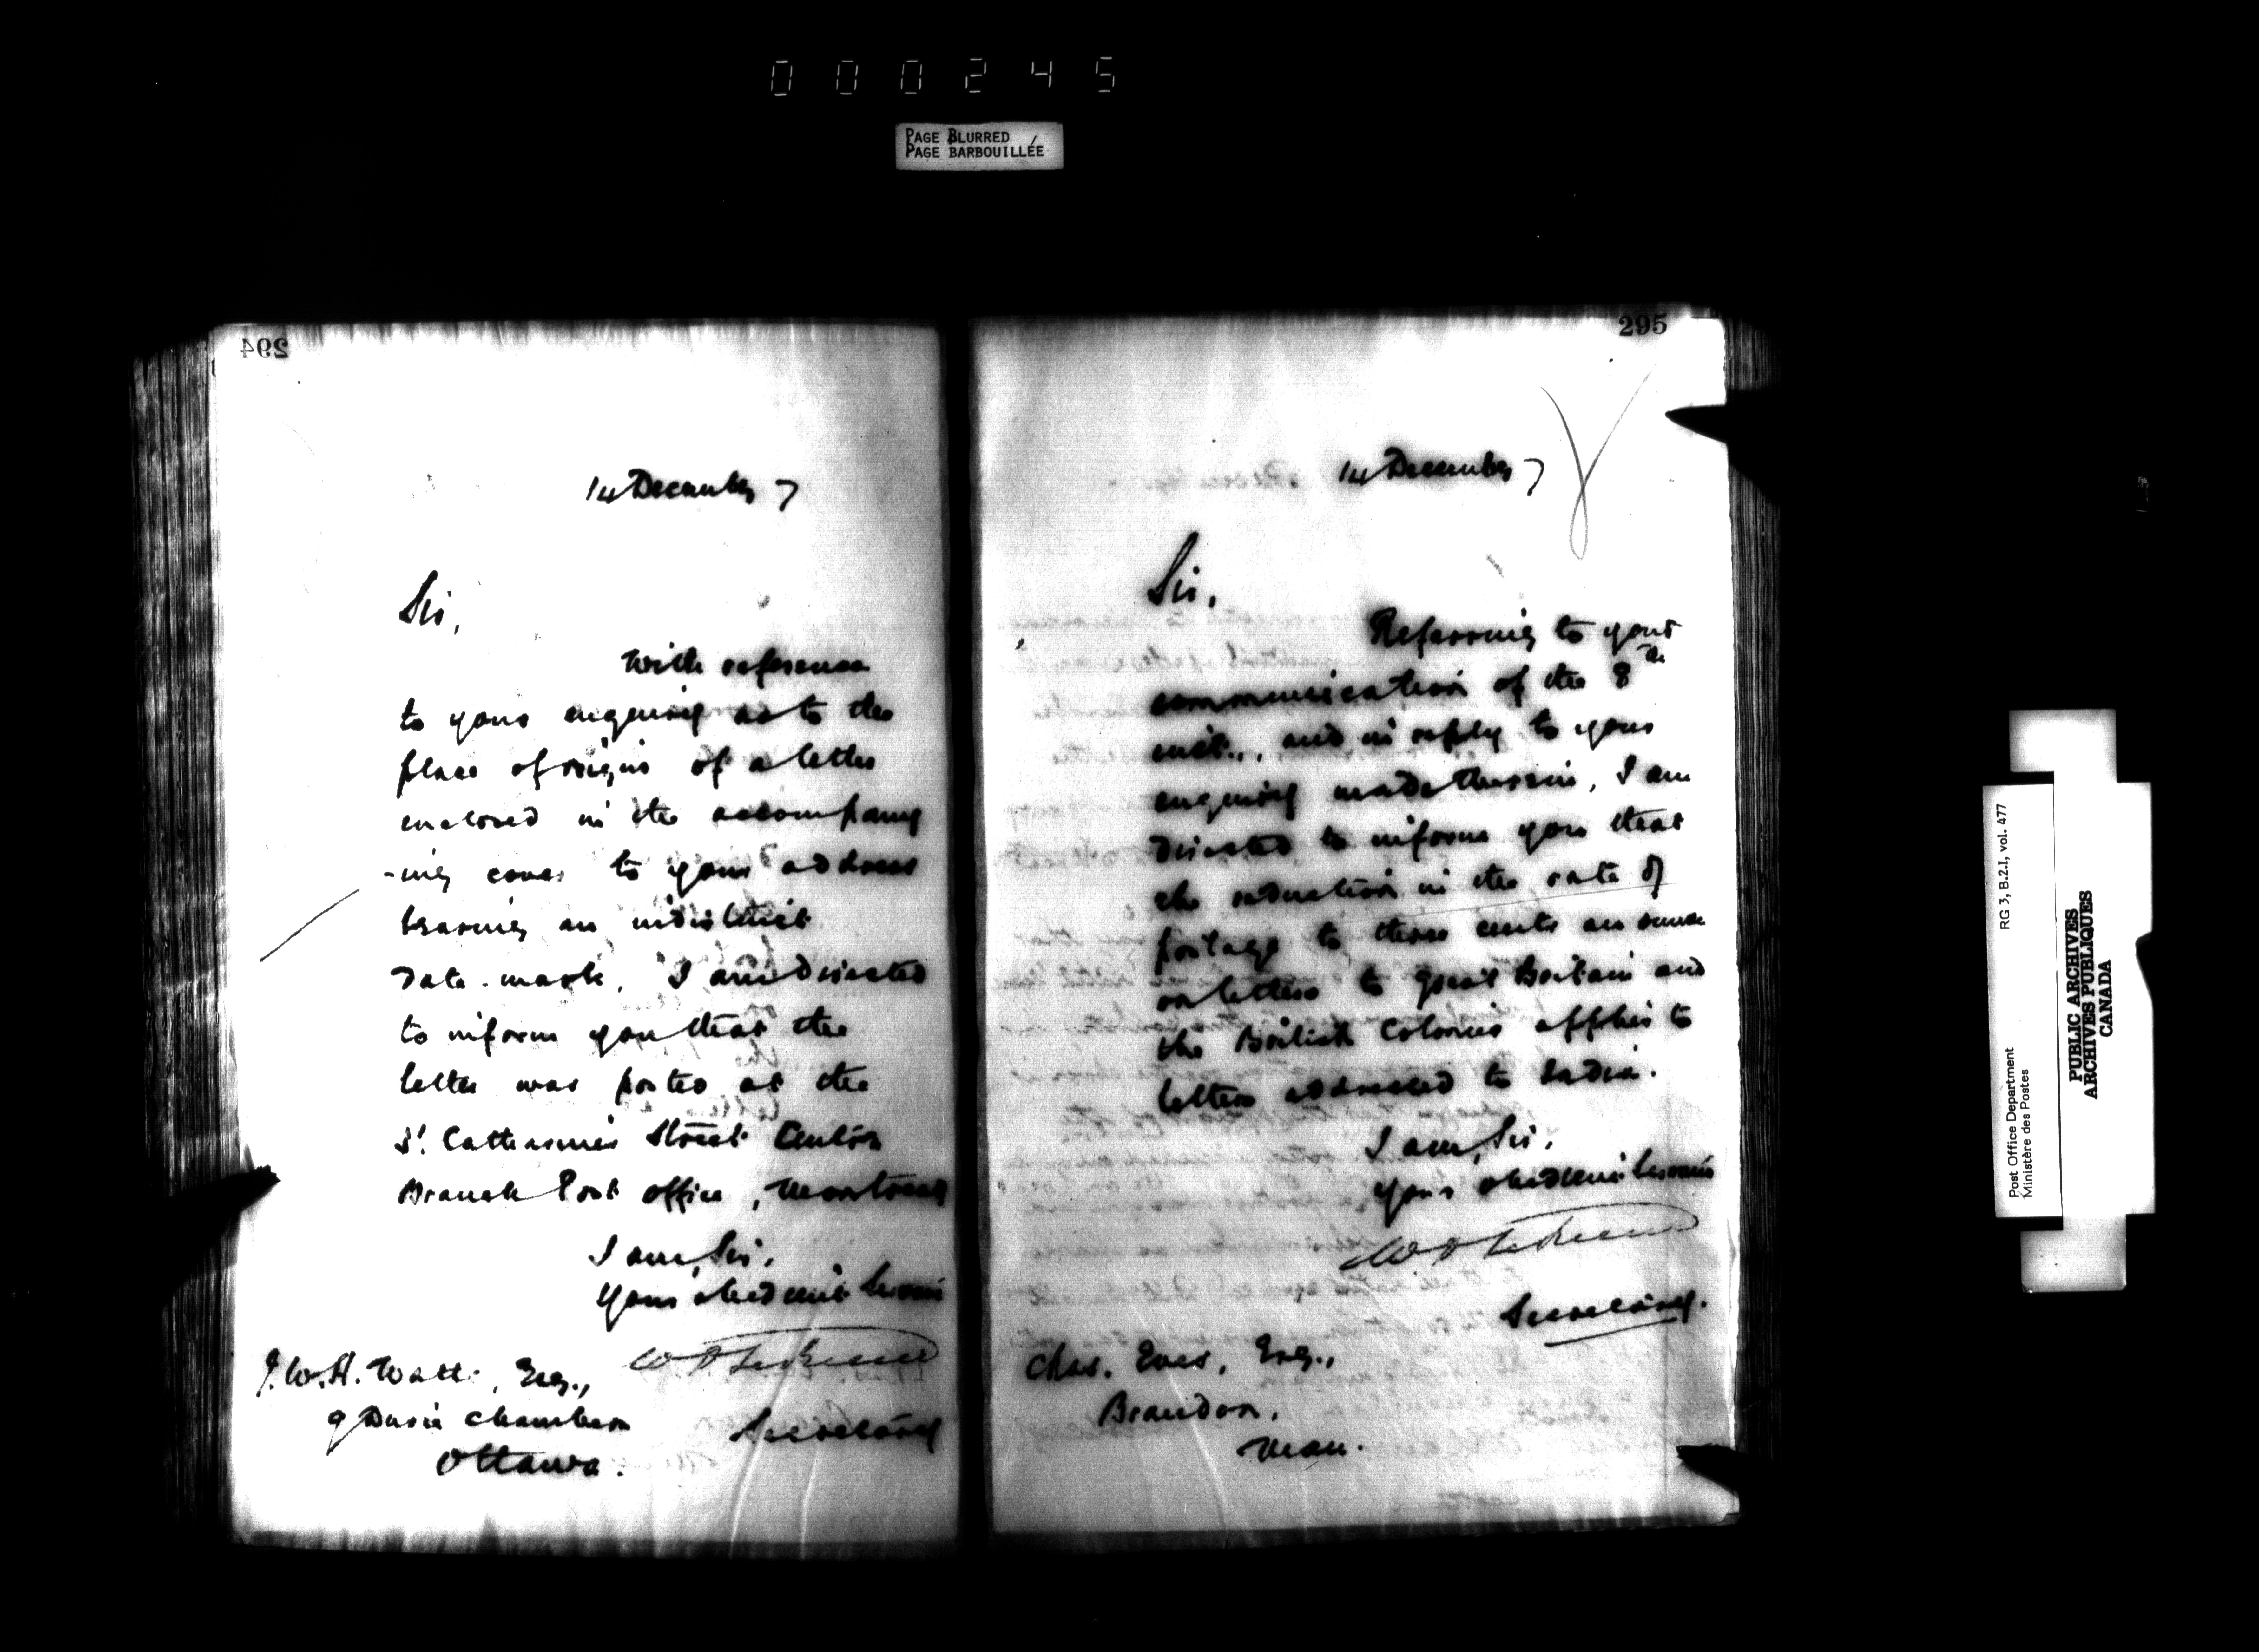 000245
PAGE BLURRED
PAGE BARBOUILLÉE
294
14 December 7
Sir,
With reference
to your enquiry as to the
place of origin of a letter
enclosed in the accompany
-ing cover to your address
bearing an indistinct
date-mark, I am directed
to inform you that the
letter was posted at the
St. Catherine Street Centre
Branch Post Office, Montreal
I am, Sir,
Your obedient Servant
Secretary
J.W.H. Watt, Esq.,
9 Chambers
Ottawa.
295
14 December 7
Sir,
Referring to your
communication of the 8th
inst., and in reply to your
enquiry made therein, I am
directed to inform you that
the reduction in the rate of
postage to three cents an ounce
on letters to Great Britain and
the British Colonies applies to
letters addressed to India.
I am, Sir,
Your obedient Servant
Secretary.
Chas. Eves, Esq.,
Brandon,
Man.
RG 3, B.2.I, vol. 477
Post Office Department
Ministère des Postes
PUBLIC ARCHIVES
ARCHIVES PUBLIQUES
CANADA